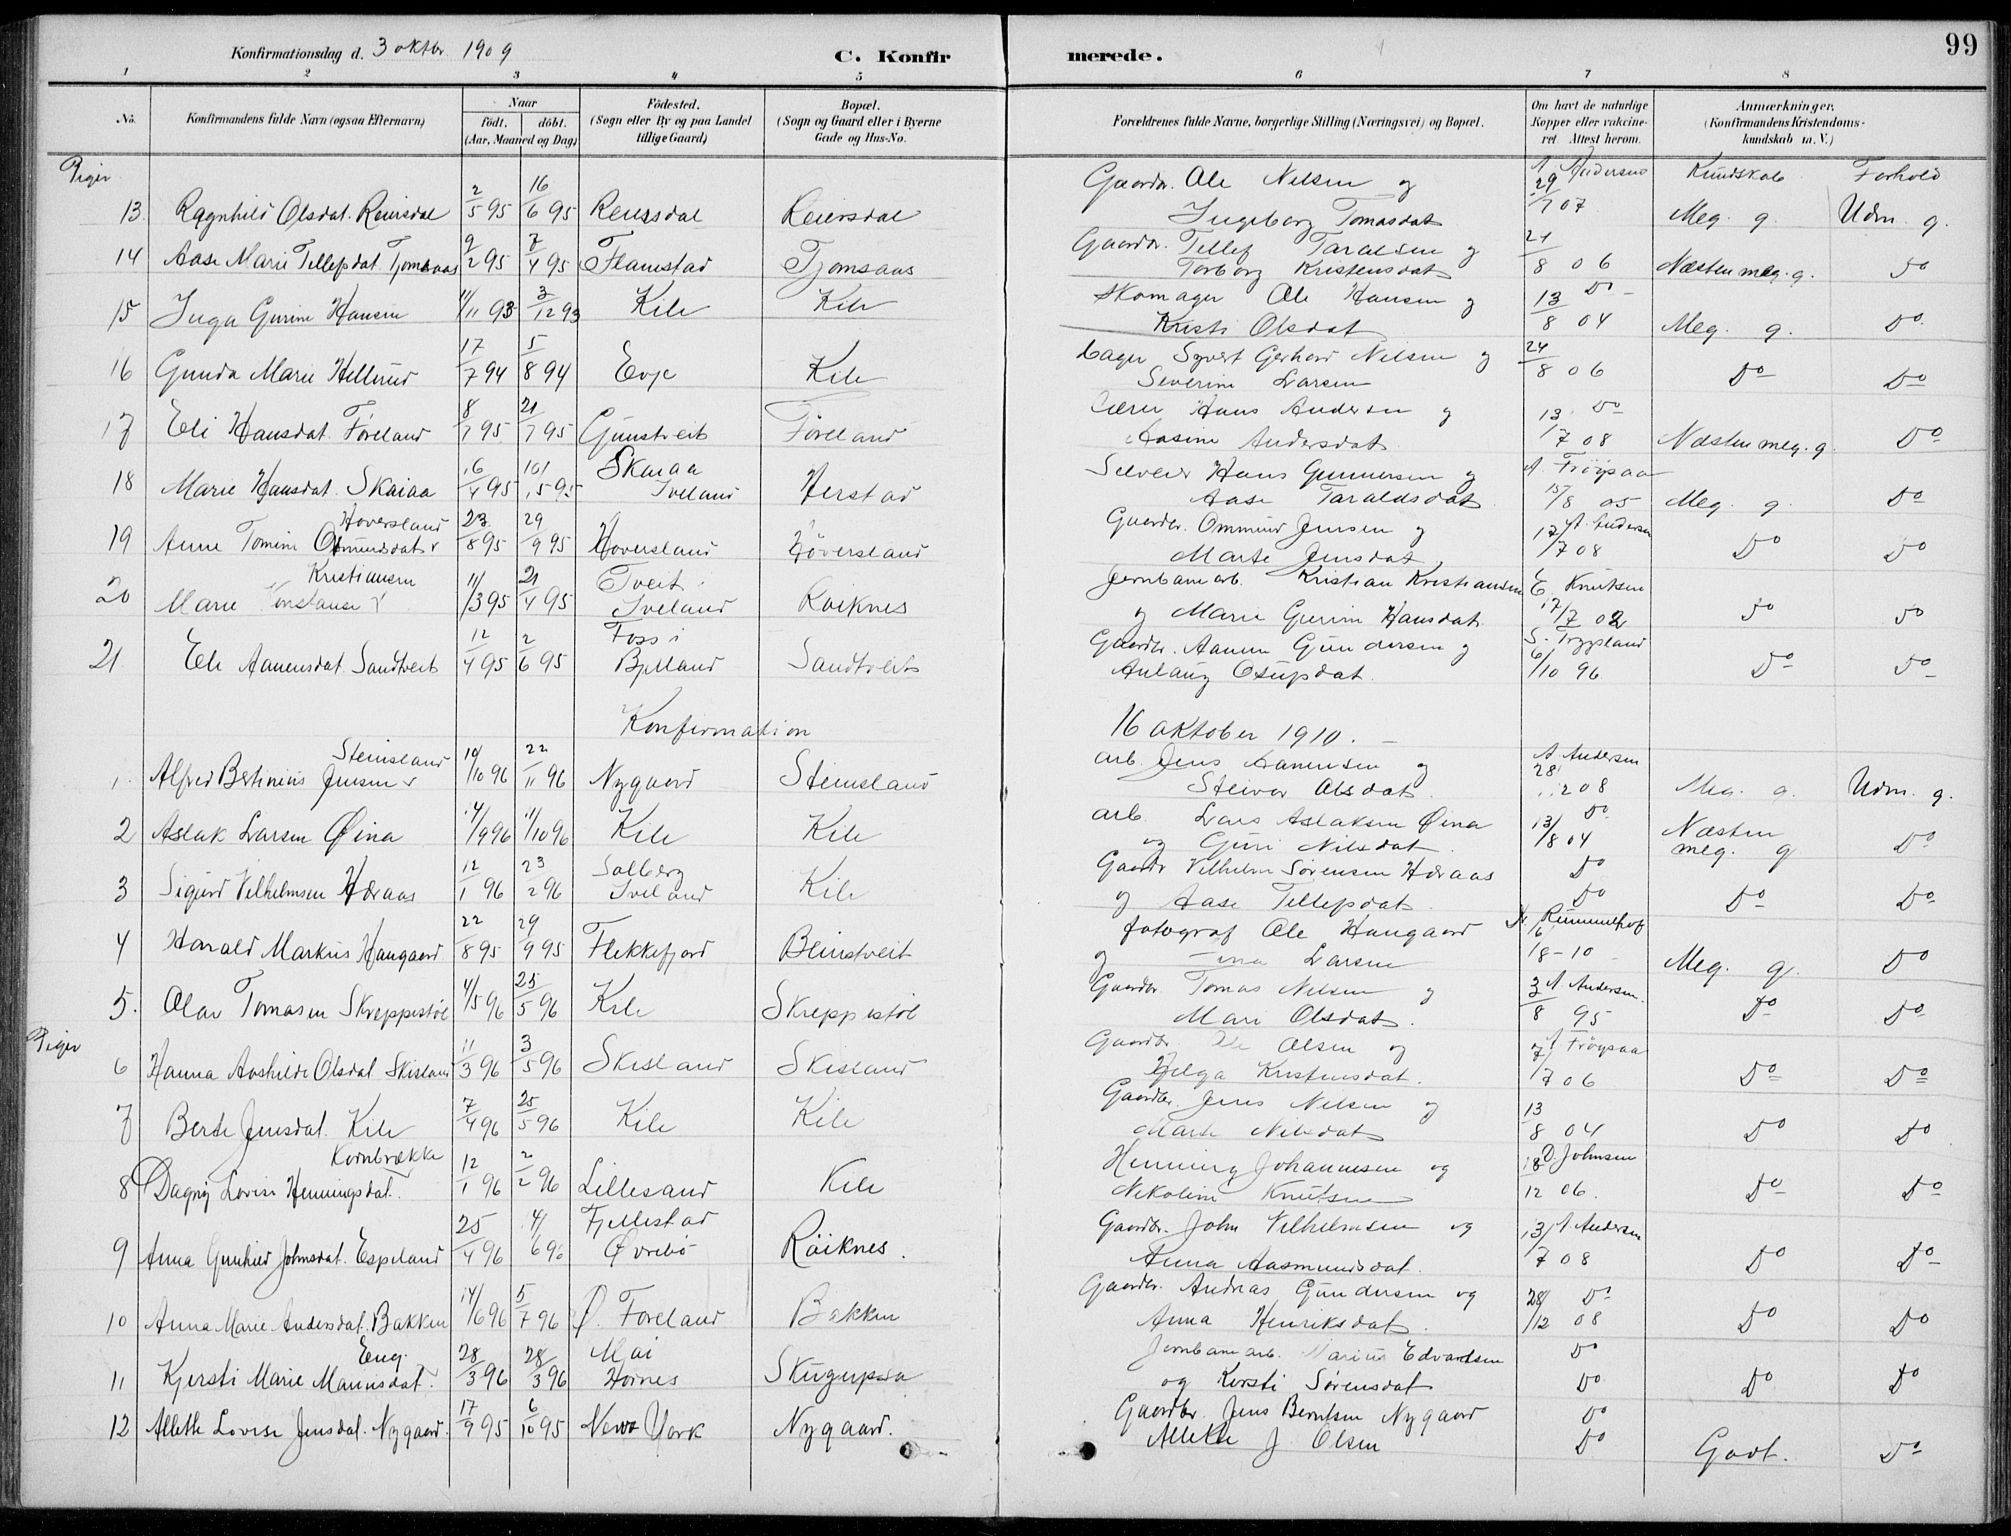 Konfirmationsdag d. 3 oktbr. 1909
C. Konfirmerede.
99
1 2 3 4 5 6 7 8
No.
Konfirmandens fulde Navn (ogsaa Efternavn)
Naar
födt. döbt.
(Aar, Maaned og Dag)
Födested.
(Sogn eller By og paa Landet tillige Gaard)
Bopæl.
(Sogn og Gaard eller i Byerne Gade og Hus-No.
Forældrenes fulde Navne, borgerlige Stilling (Næringsvei) og Bopæl.
Om havt de naturlige Kopper eller vakcineret Attest herom.
Anmærkninger.
(Konfirmandens Kristendomskundskab m. V.)
Piger
Kundskab Forhold
13. Ragnhild Olsdat. Reiersdal 2/5 95 16/6 95 Reiersdal Reiersdal Gaardbr. Ole Nilsen og Ingeborg Tomasdat A. Andersen 29/7 07 Meg. g. Udm. g.
14 Aase Marie Tellefsdat. Tjomsaas 9/2 95 7/4 95 Flamstad Tjomsaas Gaardbr. Tellef Taraldsen og Torborg Kristensdat 21/8 06 Næsten meg. g. Do
15 Inga Gurine Hansen 11/11 93 3/12 93 Kile Kile Skomager Ole Hansen og Kristi Olsdat Do 13/8 04 Meg. g. Do
16 Gunda Marie Hellerud 17/7 94 5/8 94 Evje Kile bager Syvert Gerhard Nilsen og Severine Larsen 24/8 06 Do Do
17 Eli Hansdat. Føreland 8/7 95 21/7 95 Gunstveit Føreland Lærer Hans Andersen og Aasine Andersdat. Do 13/7 08 Næsten meg. g. Do
18 Marie Hansdat. Skaiaa 16/4 95 10/5 95 Skaiaa Iveland Herstad Selveier Hans Gunnersen og Aase Taraldsdat A. Frøysaa 15/8 05 Meg. g. Do
19 Anne Tomine Omundsdat. Hoversland 23/8 95 29/9 95 Hoversland Høversland Gaardbr. Ommund Jensen og Marte Jensdat A. Andersen 17/7 08 Do Do
20 Marie Konstanse Kristiansen 11/3 95 21/4 95 Tveit Iveland Røiknes Jernbanearb. Kristian Kristiansen og Marie Gurine Hansdat. E. Knutsen 17/7 02 Do Do
21 Eli Aanensdat. Sandtveit 12/4 95 2/6 95 Foss i Bjelland Sandtveit Gaardbr. Aanen Gundersen og Anlaug Osufsdat. S. Trygland 6/10 96 Do Do
Konfirmation 16 oktober 1910.
1. Alfred Bertinius Jensen Steinsland 19/10 96 22/11 96 Nygaard Steinsland arb. Jens Aanensen og Steivor Olsdat. A. Andersen 28/12 08 Meg. g. Udm. g.
2 Aslak Larsen Øina 14/9 96 11/10 96 Kile Kile arb. Lars Aslaksen Øina og Guri Nilsdat. Do 13/8 04 Næsten meg. g Do
3 Sigurd Vilhelmsen Høraas 12/1 96 23/2 96 Solberg Iveland Kile Gaardbr Vilhelm Sørensen Høraas og Aase Tellefsdat. Do Do Do Do
4 Harald Markus Haugaard 22/8 95 29/9 95 Flekkefjord Beinstveit fotograf Ole Haugaard og Larsen 18-10 Meg. g. Do
5. Olav Tomasen Skreppestøl 4/5 96 25/5 96 Kile Skreppestøl Gaardbr Tomas Nilsen og Mari Olsdat. A. Andersen 3/8 95 Do Do
Piger
6 Hanna Aashilde Olsdat. Skisland 11/3 96 3/5 96 Skisland Skisland Gaardbr. Ole Olsen og Helga Kristensdat. A. Frøysaa 7/7 06 Do Do
7 Berte Jensdat. Kile 7/4 96 25/5 96 Kile Kile Gaardbr. Jens Nilsen og Marte Nilsdat 13/8 04 Do Do
8 Dagny Lovise Henningsdat. Kornbrække 12/1 96 2/2 96 Lillesand Kile Henning Johannesen og Nikoline Knutsen D. Johnsen 18/12 06. Do Do
9 Anna Gunhild Johnsdat. Espeland 25/4 96 14/6 96 Fjellestad Øvrebö Röiknes. Gaardbr. John Vilhelmsen og Anna Aasmundsdat. A Andersen 13/7 08 Do Do
10 Anna Marie Andersdat. Bakken 14/6 96 5/7 96 Ø. Foreland Bakken Gaardbr. Andreas Gundersen og Anna Henriksdat. Do 28/12 08 Do Do
11 Kjersti Marie Mariusdat. Eng. 28/3 96 28/3 96 Moi Hornes Jernbanearb. Marius Edvartsen og Kersti Sørensdat Do Do Do Do
12 Allette Lovise Jensdat. Nygaard. 17/9 95 6/10 95 New York Nygaard. Gaardbr. Jens Berntsen Nygaard Allette J. Olsen Do Do Godt. Do